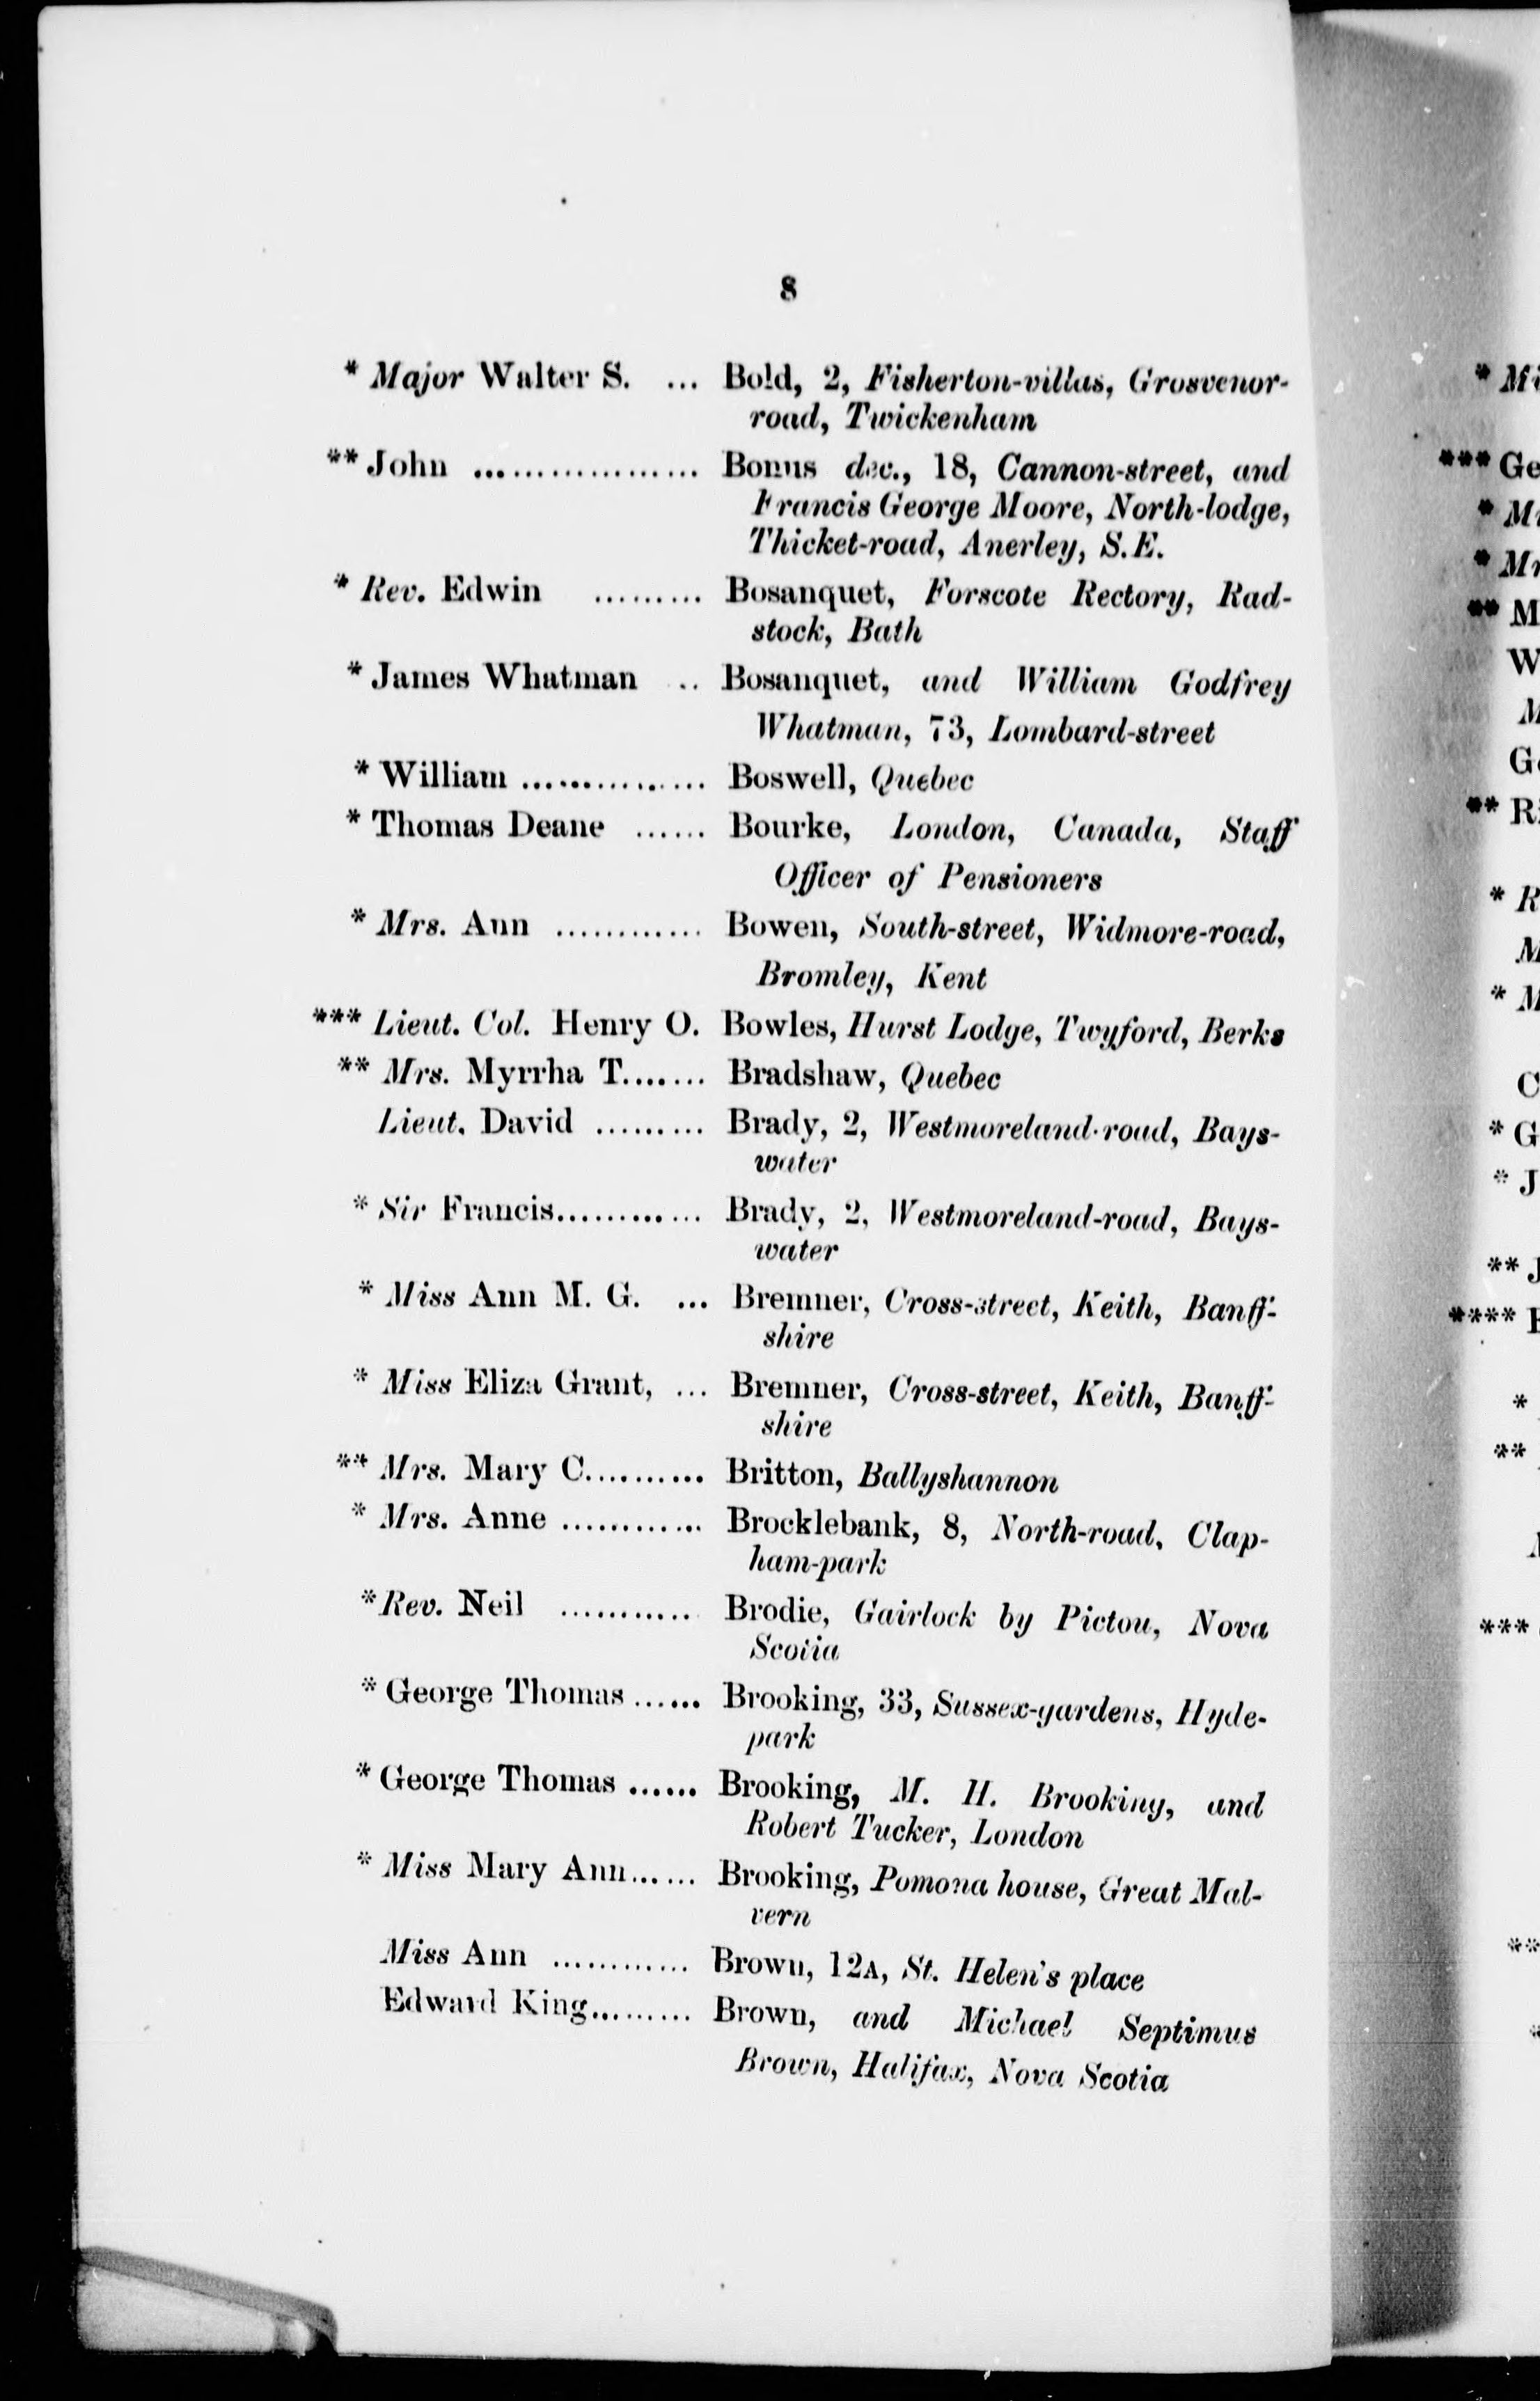 8
* Major Walter S. ... Bold, 2, Fisherton-villas, Grosvenor-
road, Twickenham
** John .................. Bonus dec., 18, Cannon-street, and
Francis George Moore, North-lodge,
Thicket-road, Anerley, S.E.
* Rev. Edwin ......... Bosanquet, Forscote Rectory, Rad-
stock, Bath
* James Whatman .. Bosanquet, and William Godfrey
Whatman, 73, Lombard-street
* William ............... Boswell, Quebec
* Thomas Deane ...... Bourke, London, Canada, Staff
Officer of Pensioners
* Mrs. Ann ............ Bowen, South-street, Widmore-road,
Bromley, Kent
*** Lieut. Col. Henry O. Bowles, Hurst Lodge, Twyford, Berks
** Mrs. Myrrha T....... Bradshaw, Quebec
Lieut. David ......... Brady, 2, Westmoreland-road, Bays-
water
* Sir Francis............ Brady, 2, Westmoreland-road, Bays-
water
* Miss Ann M. G. ... Bremner, Cross-street, Keith, Banff-
shire
* Miss Eliza Grant, ... Bremner, Cross-street, Keith, Banff-
shire
** Mrs. Mary C.......... Britton, Ballyshannon
* Mrs. Anne ............ Brocklebank, 8, North-road, Clap-
ham-park
* Rev. Neil ............ Brodie, Gairlock by Pictou, Nova
Scotia
* George Thomas ...... Brooking, 33, Sussex-gardens, Hyde-
park
* George Thomas ...... Brooking, M. H. Brooking, and
Robert Tucker, London
* Miss Mary Ann...... Brooking, Pomona house, Great Mal-
vern
Miss Ann ............ Brown, 12A, St. Helen's place
Edward King......... Brown, and Michael Septimus
Brown, Halifax, Nova Scotia